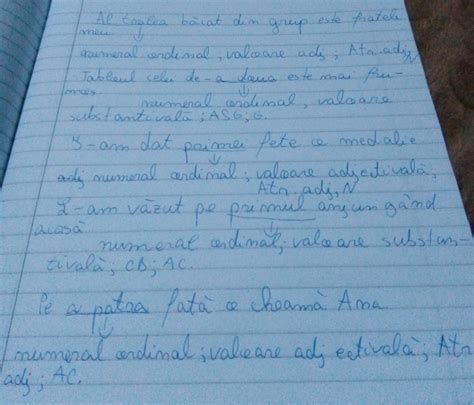 Al treilea băiat din grup este fratele
meu
numeral ordinal, valoare adj, Atr. adj, N
Tabloul celei de-a doua este mai fru-
mos.
numeral ordinal, valoare
substantivală; ASG; G.
I-am dat primei fete o medalie
adj numeral ordinal; valoare adjectivală;
Atr. adj, N
L-am văzut pe primul ajungând
acasă
numeral ordinal; valoare substan-
tivală; CD; AC.
Pe a patra fată o cheamă Ana
numeral ordinal; valoare adjectivală; Atr
adj; AC.